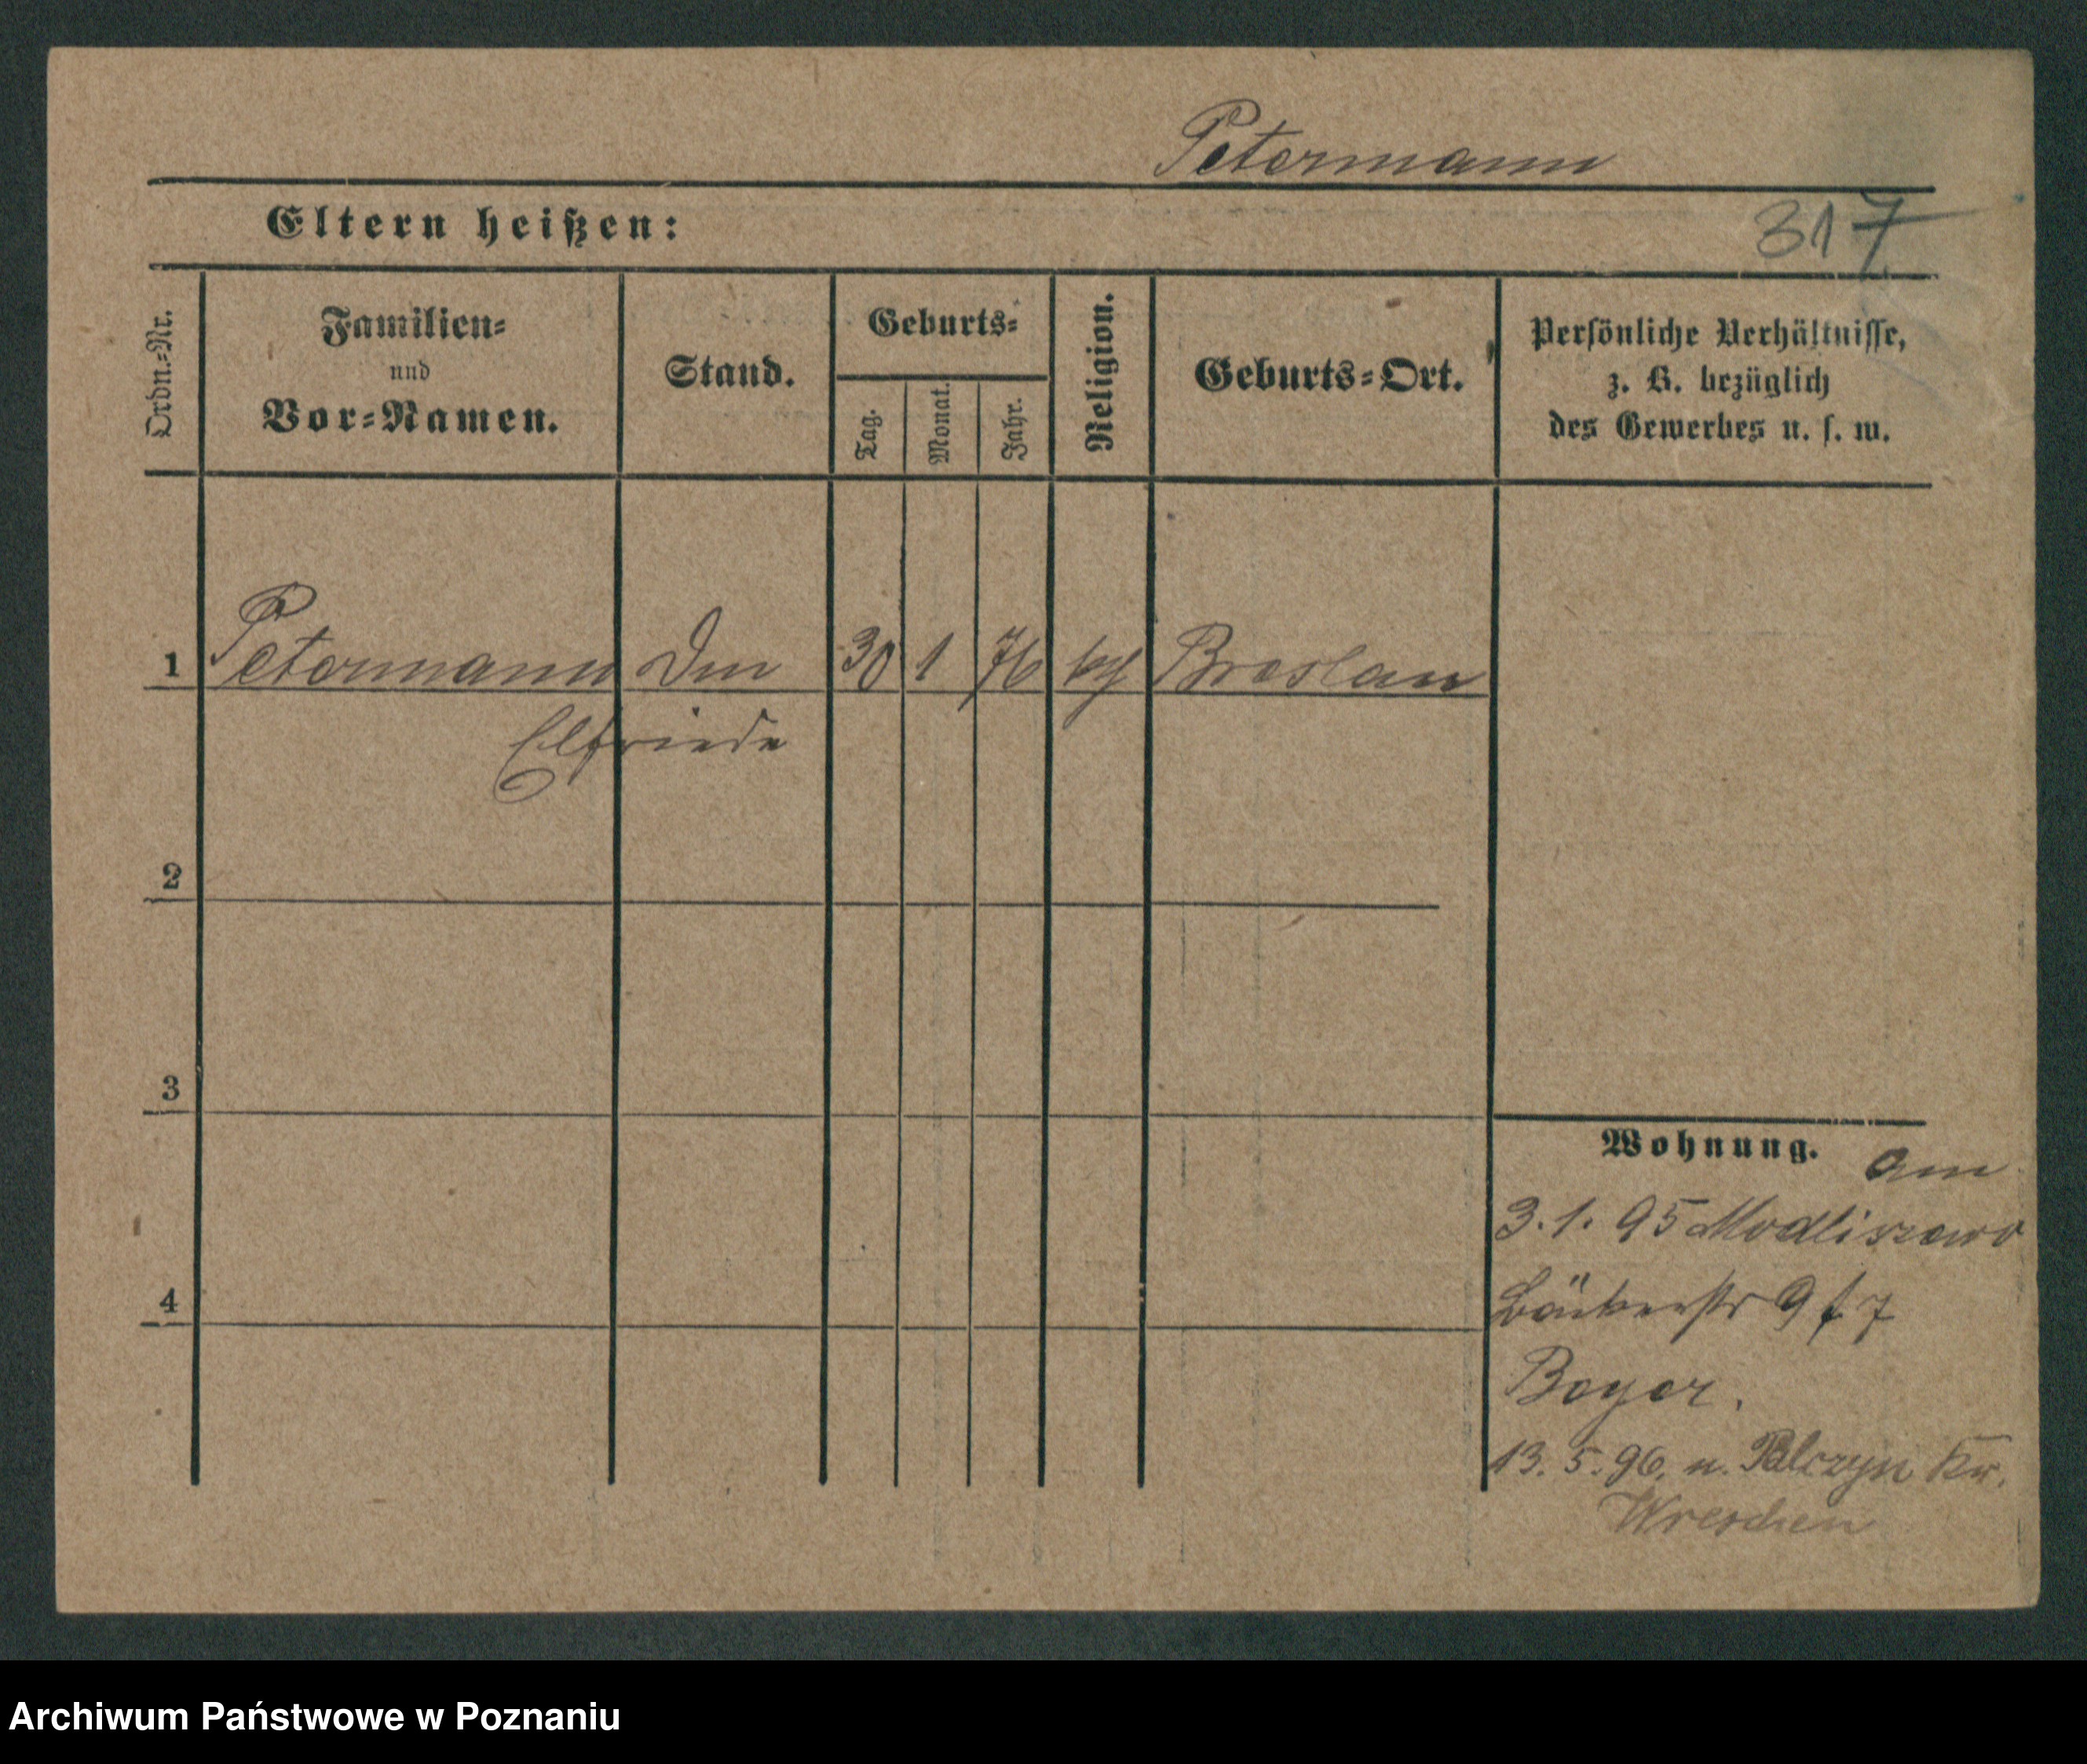 Petermann
Eltern heißen:
317
Ordn.=Nr.
Familien=
und
Vor=Namen.
Stand.
Geburts=
Tag.
Monat.
Jahr.
Religion.
Geburts=Ort.
Persönliche Verhältnisse,
z. B. bezüglich
des Gewerbes u. s. w.
1 Petermann 30 1 76 Breslau
Elfriede
2
3
4
Wohnung. am
3. 1. 95 Modliszewo
Bäckerstr 9 f 7
Beyer.
13. 5. 96. n. Palczyn Kr.
Wreschen
Archiwum Państwowe w Poznaniu